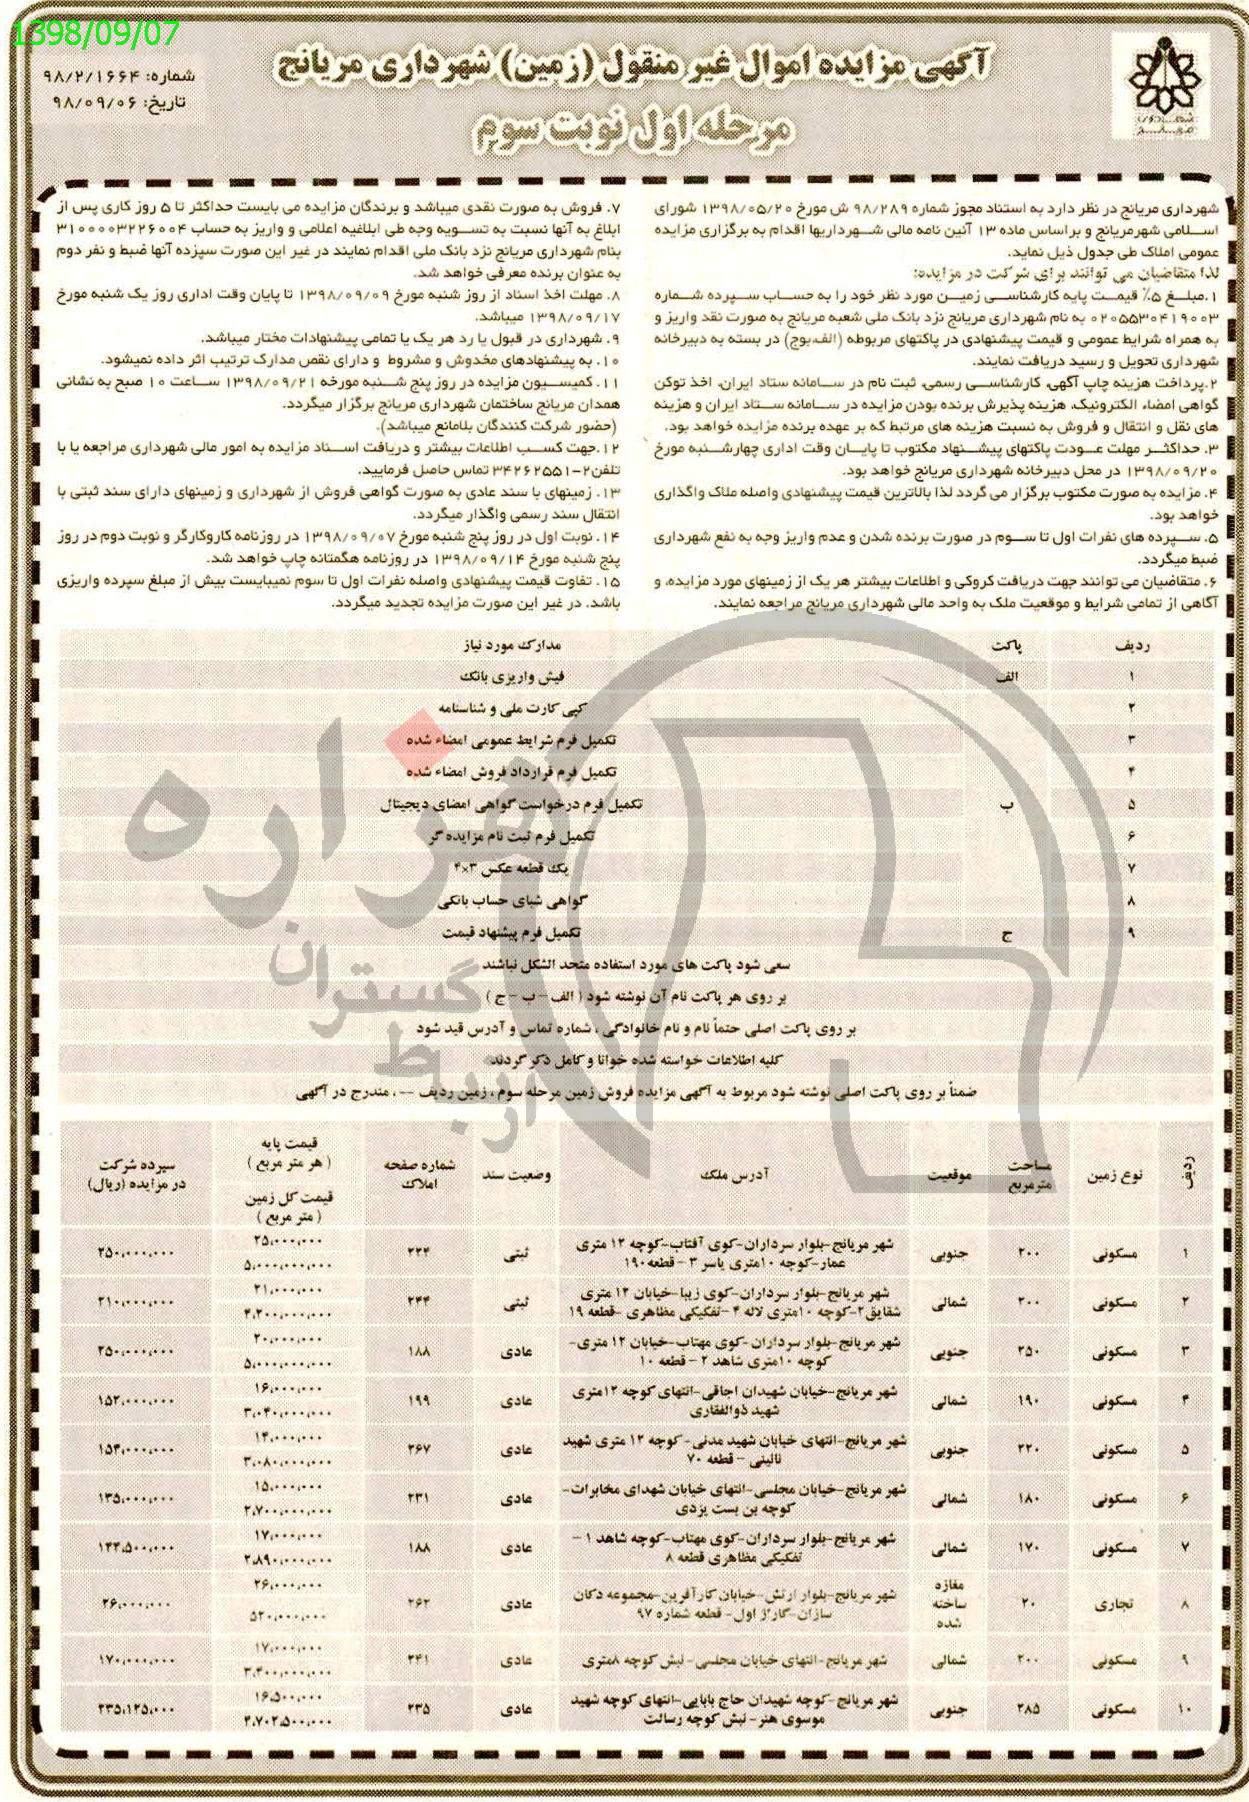 1398/09/07
آگهی مزایده اموال غیر منقول (زمین) شهرداری مریانج
مرحله اول نوبت سوم
شماره: ۹۸/۲/۱۶۶۴
تاریخ: ۹۸/۰۹/۰۶
شهرداری مریانج در نظر دارد به استناد مجوز شماره ۹۸/۲۸۹ ش مورخ ۱۳۹۸/۰۵/۲۰ شورای
اسلامی شهرمریانج و براساس ماده ۱۳ آئین نامه مالی شهرداریها اقدام به برگزاری مزایده
عمومی املاک طی جدول ذیل نماید.
لذا متقاضیان می توانند برای شرکت در مزایده:
۱.مبلغ ۵٪ قیمت پایه کارشناسی زمین مورد نظر خود را به حساب سپرده شماره
۰۲۰۵۵۳۰۴۱۹۰۰۳ به نام شهرداری مریانج نزد بانک ملی شعبه مریانج به صورت نقد واریز و
به همراه شرایط عمومی و قیمت پیشنهادی در پاکتهای مربوطه (الف،بوج) در بسته به دبیرخانه
شهرداری تحویل و رسید دریافت نمایند.
۲.پرداخت هزینه چاپ آگهی، کارشناسی رسمی، ثبت نام در سامانه ستاد ایران، اخذ توکن
گواهی امضاء الکترونیک، هزینه پذیرش برنده بودن مزایده در سامانه ستاد ایران و هزینه
های نقل و انتقال و فروش به نسبت هزینه های مرتبط که بر عهده برنده مزایده خواهد بود.
۳. حداکثر مهلت عودت پاکتهای پیشنهاد مکتوب تا پایان وقت اداری چهارشنبه مورخ
۱۳۹۸/۰۹/۲۰ در محل دبیرخانه شهرداری مریانج خواهد بود.
۴. مزایده به صورت مکتوب برگزار می گردد لذا بالاترین قیمت پیشنهادی واصله ملاک واگذاری
خواهد بود.
۵. سپرده های نفرات اول تا سوم در صورت برنده شدن و عدم واریز وجه به نفع شهرداری
ضبط میگردد.
۶. متقاضیان می توانند جهت دریافت کروکی و اطلاعات بیشتر هر یک از زمینهای مورد مزایده، و
آگاهی از تمامی شرایط و موقعیت ملک به واحد مالی شهرداری مریانج مراجعه نمایند.
۷. فروش به صورت نقدی میباشد و برندگان مزایده می بایست حداکثر تا ۵ روز کاری پس از
ابلاغ به آنها نسبت به تسویه وجه طی ابلاغیه اعلامی و واریز به حساب ۳۱۰۰۰۰۳۲۲۶۰۰۴
بنام شهرداری مریانج نزد بانک ملی اقدام نمایند در غیر این صورت سپرده آنها ضبط و نفر دوم
به عنوان برنده معرفی خواهد شد.
۸. مهلت اخذ اسناد از روز شنبه مورخ ۱۳۹۸/۰۹/۰۹ تا پایان وقت اداری روز یک شنبه مورخ
۱۳۹۸/۰۹/۱۷ میباشد.
۹. شهرداری در قبول یا رد هر یک یا تمامی پیشنهادات مختار میباشد.
۱۰. به پیشنهادهای مخدوش و مشروط و دارای نقص مدارک ترتیب اثر داده نمیشود.
۱۱. کمیسیون مزایده در روز پنج شنبه مورخه ۱۳۹۸/۰۹/۲۱ ساعت ۱۰ صبح به نشانی
همدان مریانج ساختمان شهرداری مریانج برگزار میگردد.
(حضور شرکت کنندگان بلامانع میباشد).
۱۲.جهت کسب اطلاعات بیشتر و دریافت اسناد مزایده به امور مالی شهرداری مراجعه یا با
تلفن۲-۳۴۲۶۲۵۵۱ تماس حاصل فرمایید.
۱۳. زمینهای با سند عادی به صورت گواهی فروش از شهرداری و زمینهای دارای سند ثبتی با
انتقال سند رسمی واگذار میگردد.
۱۴. نوبت اول در روز پنج شنبه مورخ ۱۳۹۸/۰۹/۰۷ در روزنامه کاروکارگر و نوبت دوم در روز
پنج شنبه مورخ ۱۳۹۸/۰۹/۱۴ در روزنامه هگمتانه چاپ خواهد شد.
۱۵. تفاوت قیمت پیشنهادی واصله نفرات اول تا سوم نمیبایست بیش از مبلغ سپرده واریزی
باشد. در غیر این صورت مزایده تجدید میگردد.
ردیف پاکت مدارک مورد نیاز
۱ الف فیش واریزی بانک
۲ کپی کارت ملی و شناسنامه
۳ تکمیل فرم شرایط عمومی امضاء شده
۴ تکمیل فرم قرارداد فروش امضاء شده
۵ ب تکمیل فرم درخواست گواهی امضای دیجیتال
۶ تکمیل فرم ثبت نام مزایده گر
۷ یک قطعه عکس ۳×۴
۸ گواهی شبای حساب بانکی
۹ ج تکمیل فرم پیشنهاد قیمت
سعی شود پاکت های مورد استفاده متحد الشکل نباشند
بر روی هر پاکت نام آن نوشته شود ( الف - ب - ج )
بر روی پاکت اصلی حتماً نام و نام خانوادگی ، شماره تماس و آدرس قید شود
کلیه اطلاعات خواسته شده خوانا و کامل ذکر گردند
ضمناً بر روی پاکت اصلی نوشته شود مربوط به آگهی مزایده فروش زمین مرحله سوم ، زمین ردیف -- ، مندرج در آگهی
ردیف نوع زمین مساحت مترمربع موقعیت آدرس ملک وضعیت سند شماره صفحه املاک قیمت پایه ( هر متر مربع ) قیمت کل زمین ( متر مربع ) سپرده شرکت در مزایده (ریال)
۱ مسکونی ۲۰۰ جنوبی شهر مریانج-بلوار سرداران-کوی آفتاب-کوچه ۱۲ متری عمار-کوچه ۱۰متری یاسر ۳ - قطعه ۱۹۰ ثبتی ۲۲۴ ۲۵،۰۰۰،۰۰۰ ۵،۰۰۰،۰۰۰،۰۰۰ ۲۵۰،۰۰۰،۰۰۰
۲ مسکونی ۲۰۰ شمالی شهر مریانج-بلوار سرداران-کوی زیبا-خیابان ۱۲ متری شقایق۲-کوچه ۱۰متری لاله ۴ -تفکیکی مظاهری -قطعه ۱۹ ثبتی ۲۴۴ ۲۱،۰۰۰،۰۰۰ ۴،۲۰۰،۰۰۰،۰۰۰ ۲۱۰،۰۰۰،۰۰۰
۳ مسکونی ۲۵۰ جنوبی شهر مریانج-بلوار سرداران -کوی مهتاب-خیابان ۱۲ متری- کوچه ۱۰متری شاهد ۲ - قطعه ۱۰ عادی ۱۸۸ ۲۰،۰۰۰،۰۰۰ ۵،۰۰۰،۰۰۰،۰۰۰ ۲۵۰،۰۰۰،۰۰۰
۴ مسکونی ۱۹۰ شمالی شهر مریانج-خیابان شهیدان اجاقی-انتهای کوچه ۱۲متری شهید ذوالفقاری عادی ۱۹۹ ۱۶،۰۰۰،۰۰۰ ۳،۰۴۰،۰۰۰،۰۰۰ ۱۵۲،۰۰۰،۰۰۰
۵ مسکونی ۲۲۰ جنوبی شهر مریانج-انتهای خیابان شهید مدنی-کوچه ۱۲ متری شهید نائینی - قطعه ۷۰ عادی ۲۶۷ ۱۴،۰۰۰،۰۰۰ ۳،۰۸۰،۰۰۰،۰۰۰ ۱۵۴،۰۰۰،۰۰۰
۶ مسکونی ۱۸۰ شمالی شهر مریانج-خیابان مجلسی-انتهای خیابان شهدای مخابرات- کوچه بن بست یزدی عادی ۲۳۱ ۱۵،۰۰۰،۰۰۰ ۲،۷۰۰،۰۰۰،۰۰۰ ۱۳۵،۰۰۰،۰۰۰
۷ مسکونی ۱۷۰ شمالی شهر مریانج-بلوار سرداران-کوی مهتاب-کوچه شاهد ۱ - تفکیکی مظاهری قطعه ۸ عادی ۱۸۸ ۱۷،۰۰۰،۰۰۰ ۲،۸۹۰،۰۰۰،۰۰۰ ۱۴۴،۵۰۰،۰۰۰
۸ تجاری ۲۰ مغازه ساخته شده شهر مریانج-بلوار ارتش-خیابان کارآفرین-مجموعه دکان سازان-گاراژ اول- قطعه شماره ۹۷ عادی ۲۶۲ ۲۶،۰۰۰،۰۰۰ ۵۲۰،۰۰۰،۰۰۰ ۲۶،۰۰۰،۰۰۰
۹ مسکونی ۲۰۰ شمالی شهر مریانج-انتهای خیابان مجلسی- نبش کوچه ۸متری عادی ۲۴۱ ۱۷،۰۰۰،۰۰۰ ۳،۴۰۰،۰۰۰،۰۰۰ ۱۷۰،۰۰۰،۰۰۰
۱۰ مسکونی ۲۸۵ جنوبی شهر مریانج-کوچه شهیدان حاج بابایی-انتهای کوچه شهید موسوی هنر- نبش کوچه رسالت عادی ۲۳۵ ۱۶،۵۰۰،۰۰۰ ۴،۷۰۲،۵۰۰،۰۰۰ ۲۳۵،۱۲۵،۰۰۰
هزاره
گستران
ارتباط